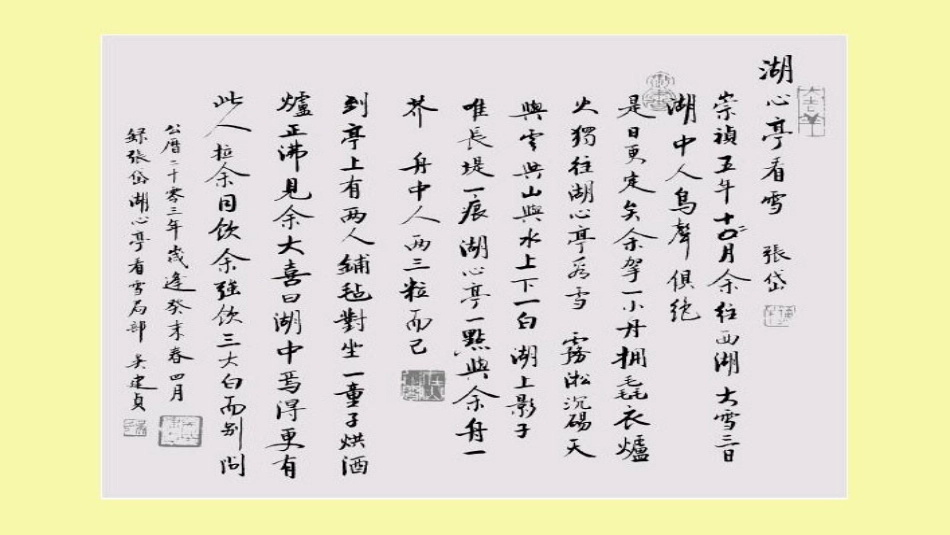 湖心亭看雪 張岱
崇禎五年十二月余往西湖大雪三日
湖中人鳥聲俱绝
是日更定矣余挐一小舟拥毳衣爐
火獨往湖心亭看雪 霧淞沉碭天
與雲與山與水上下一白 湖上影子
唯長堤一痕湖心亭一點與余舟一
芥 舟中人两三粒而已
到亭上有两人鋪毡對坐一童子烘酒
爐正沸見余大喜曰湖中焉得更有
此人拉余同饮余強饮三大白而别問
公曆二十零三年歲逢癸未春四月
録張岱湖心亭看雪局部 吴建貞